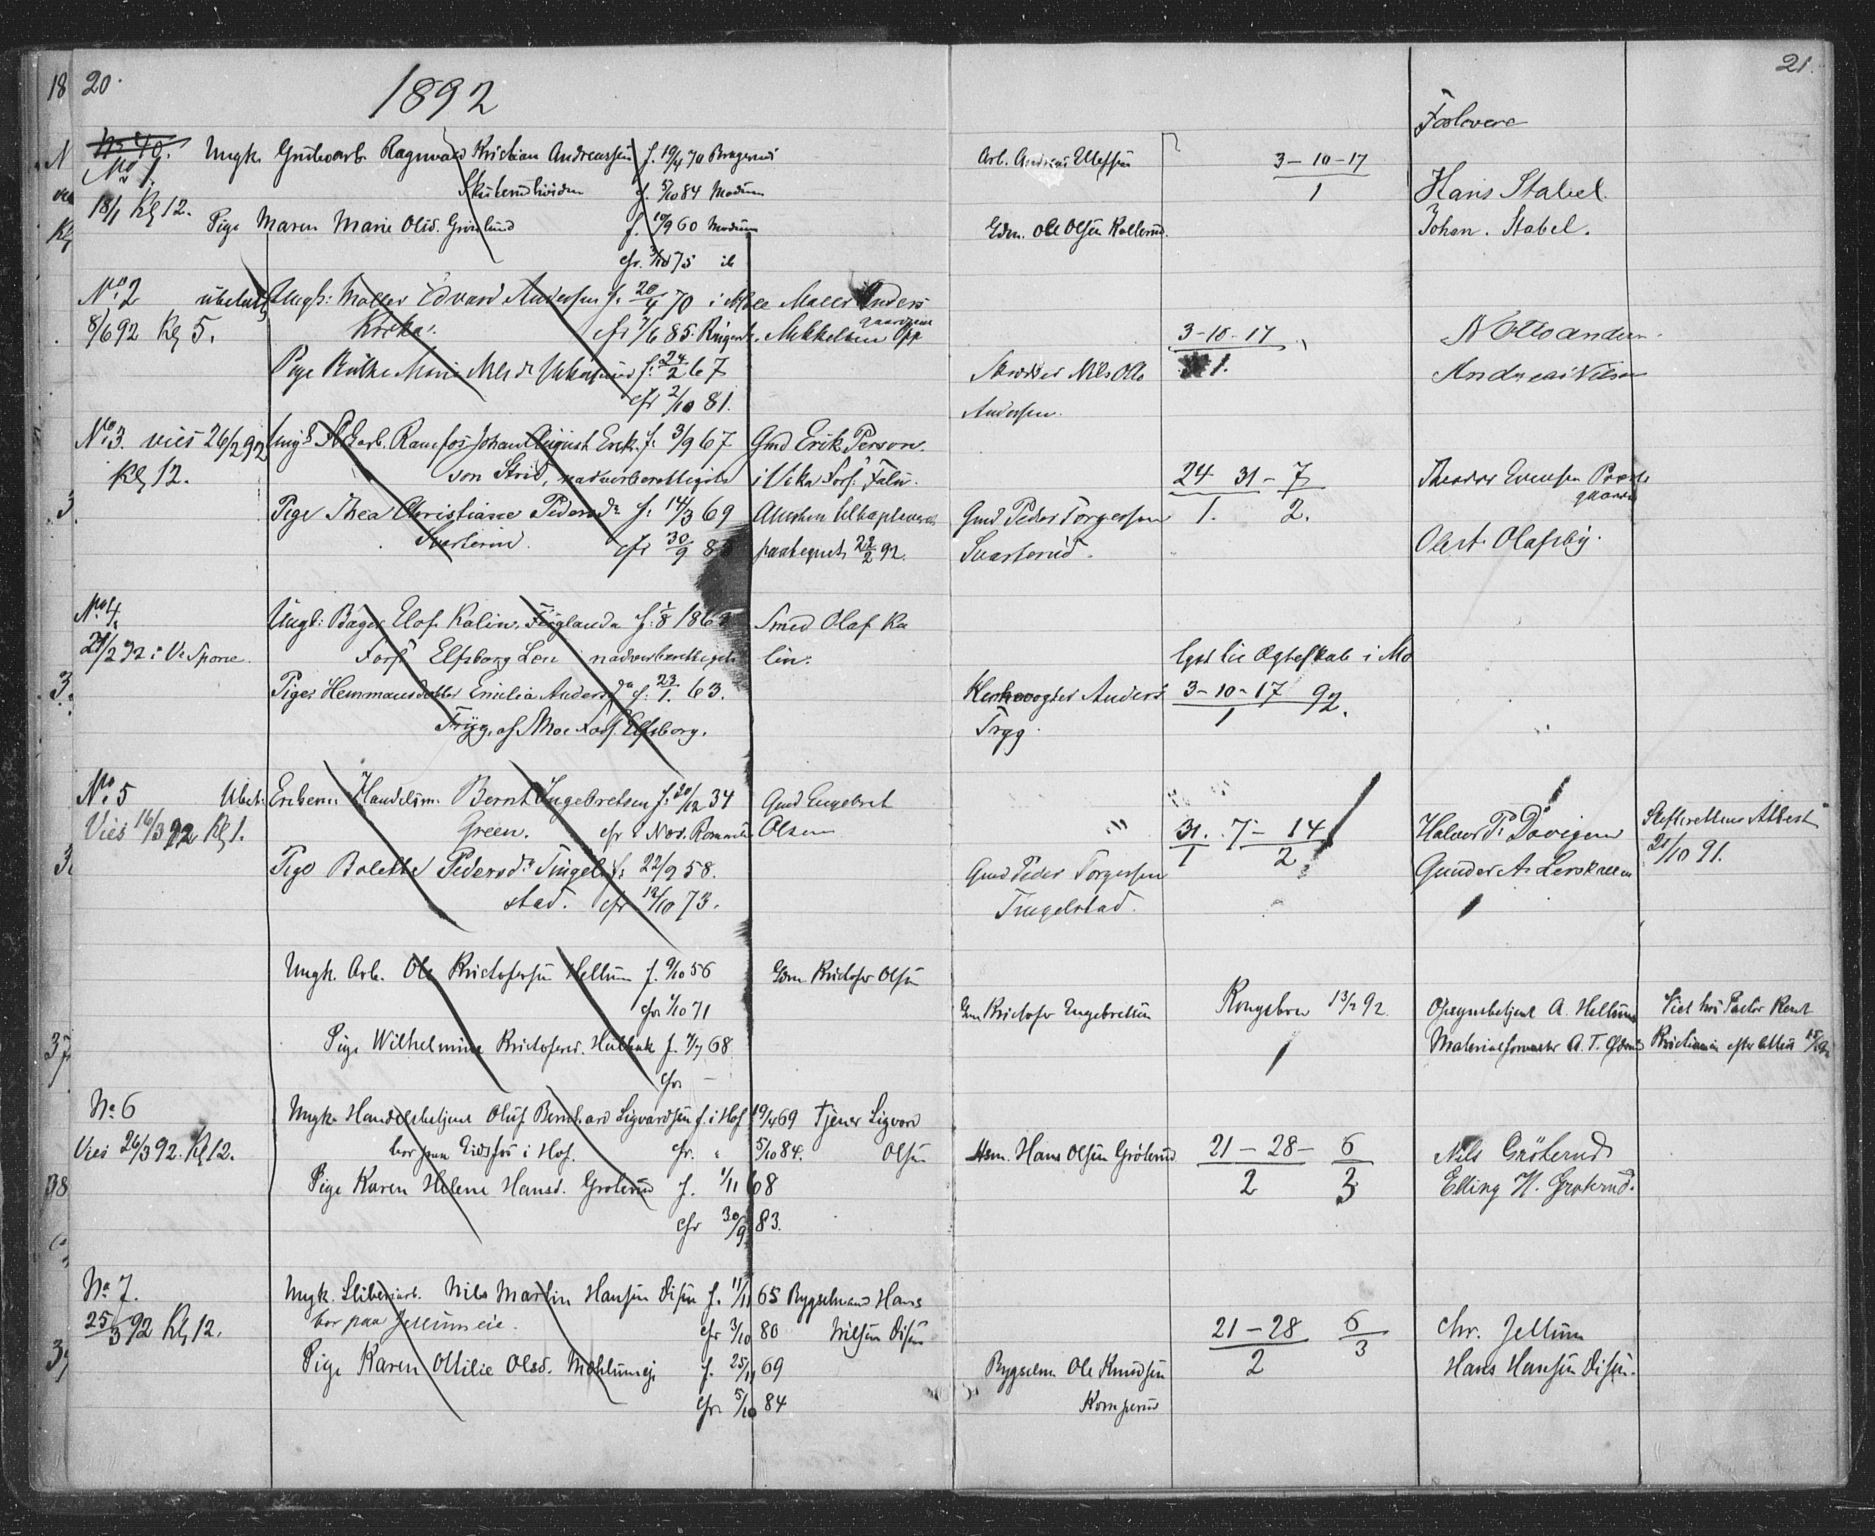 20.
1892
21.
Forlovere
No 1.
18/1 Kl 12.
Ungk. Grubearb. Ragnvald Kristian Andreassen f. 19/4 70 Bragernes
Skuterudhviden f. 5/10 84 Modum
Pige Maren Marie Olsd. Grönlund f. 19/9 60 Modum
cfr. 3/10 75 ib
Arb. Andreas Ulefsen
Gdm. Ole Olsen Kollerud.
3-10-17
1
Hans Stabel.
Johan. Stabel.
No 2 ubetalt
8/6 92 Kl 5.
Ungk: Møller Edvard Andersen f. 20/4 70
cfr 7/6 85. Ringerike
Pige Mina Nilsdr f. 24/2 67
cfr 2/10 81.
Møller Anders
Mikkelsen
Skrædder Nils Otto
Andersen.
3-10-17
1.
N Otto andersen
Andreas Nilsen
No 3. vies 26/2 92
Kl 12.
Ungk Arb. Ramfos Johan August Erik- f. 3/9 67
son Strid, nadverberettiget
Pige Thea Christiane Pedersdr f. 14/3 69
Svarterud. cfr 30/9 83
Gmd Erik Person.
i Vika Fors. Falun.
Attesten tilbageleveret
paategnet 22/2 92.
Gmd Peder Torgersen
Svarterud.
24 31 - 7
1. 2.
Theodor Evensen Præste
gaarden
Olert. Olafsby.
No 4.
21/2 92 i V. Spone.
Ungk: Bager Elof Kalin, Färglanda f. 1/8 1865
Fors Elfsborg Len nadverberettiget
Pige Hemmansdatter Emilia Andersdr f. 23/1. 63.
Tryg, af Moe Fors. Elfsborg.
Smed Olaf Ka
lin.
Kirkevogter Anders
Tryg.
lyst til Ægteskab i Mo
3-10-17 92.
1
No 5 Ubet.
Vies 16/3 92 Kl 1.
Enkem. Handelsm. Bernt Ingebretsen f. 20/12 34
Green. cfr 8 Nov.
Pige Bolette Pedersdr Tingel- f. 22/9 58.
stad. cfr 12/10 73.
Gmd Engebret
Olsen
Gmd Peder Torgersen
Tingelstad.
31. 7 - 14
1 2
Halvor P. Dövigen
Gunder A. Lerskallen
Skifterettens Attest
21/10 91.
Ungk. Arb. Ole Kristofersen Hellum f. 9/10 56
cfr 1/10 71
Pige Wilhelmine Kristofersd. Hulbak f. 7/7 68
cfr -
Gdm. Kristofer Olsen
Gm Kristofer Engebretsen
Kongsberg 13/2 92
Opsynsbetjent A. Hellum
Materialforvalter A. T.
Viet hos Pastor
Kristiania efter Attest
No 6
Vies 26/3 92. Kl 12.
Ungk. Handelsbetjent Oluf Bernhard Sigvardsen f. i Hof 19/4 69
bor paa Eidsfos i Hof. cfr. " 5/10 84.
Pige Karen Helene Hansd. Grøterud f. 1/11 68
cfr 30/9 83.
Tjener Sigvard
Olsen
Hsm. Hans Olsen Gröterud
21-28- 6
2 3
Nils Gröterud
Elling H. Grøterud.
No 7.
25/3 92 Kl 12.
Ungk. Sliberiarb. Nils Martin Hansen Disen f. 11/11 65
bor paa Jellumeie. cfr 3/10 80
Pige Karen Ottilie Olsd. Møhlumeje f. 25/11 69
cfr. 5/10 84
Bygselmand Hans
Nilsen Disen
Bygselm Ole Knudsen
Komperud
21-28 6
2 3
Chr. Jellum
Hans Hansen Disen.